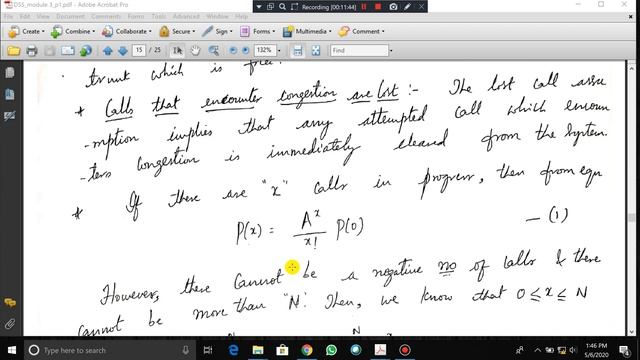 DSS_module 3_p1.pdf - Adobe Acrobat Pro
Recording [00:11:44]
File Edit View Window Help
Create Combine Collaborate Secure Sign Forms Multimedia Comment
15 / 25 132% Find
trunk which is free.
* Calls that encounter congestion are lost :- The lost call assu
-mption implies that any attempted call which encoun
-ters congestion is immediately cleared from the system.
* If there are "x" calls in progress, then from equ
P(x) = A^x / x! P(0) — (1)
However, there cannot be a negative no of calls & there
cannot be more than "N". Then, we know that 0 ≤ x ≤ N
1:46 PM
5/6/2020